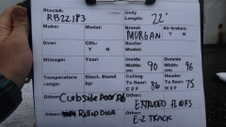 Stock#: RB22183 Body Length: 22'
Make: Model: Brand: MORGAN Air brakes? Y N
Over: CDL: Y N Reefer Model:
Mileage: Year: Inside Width: 90 Outside Width: 96
Temperature range: Elect. Stand by: Ceiling To floor: 86 Header To floor: 75
Other: Curbside Door Other: EXTRUDED FLOORS
Other: Rollup Door Other: E-Z TRACK